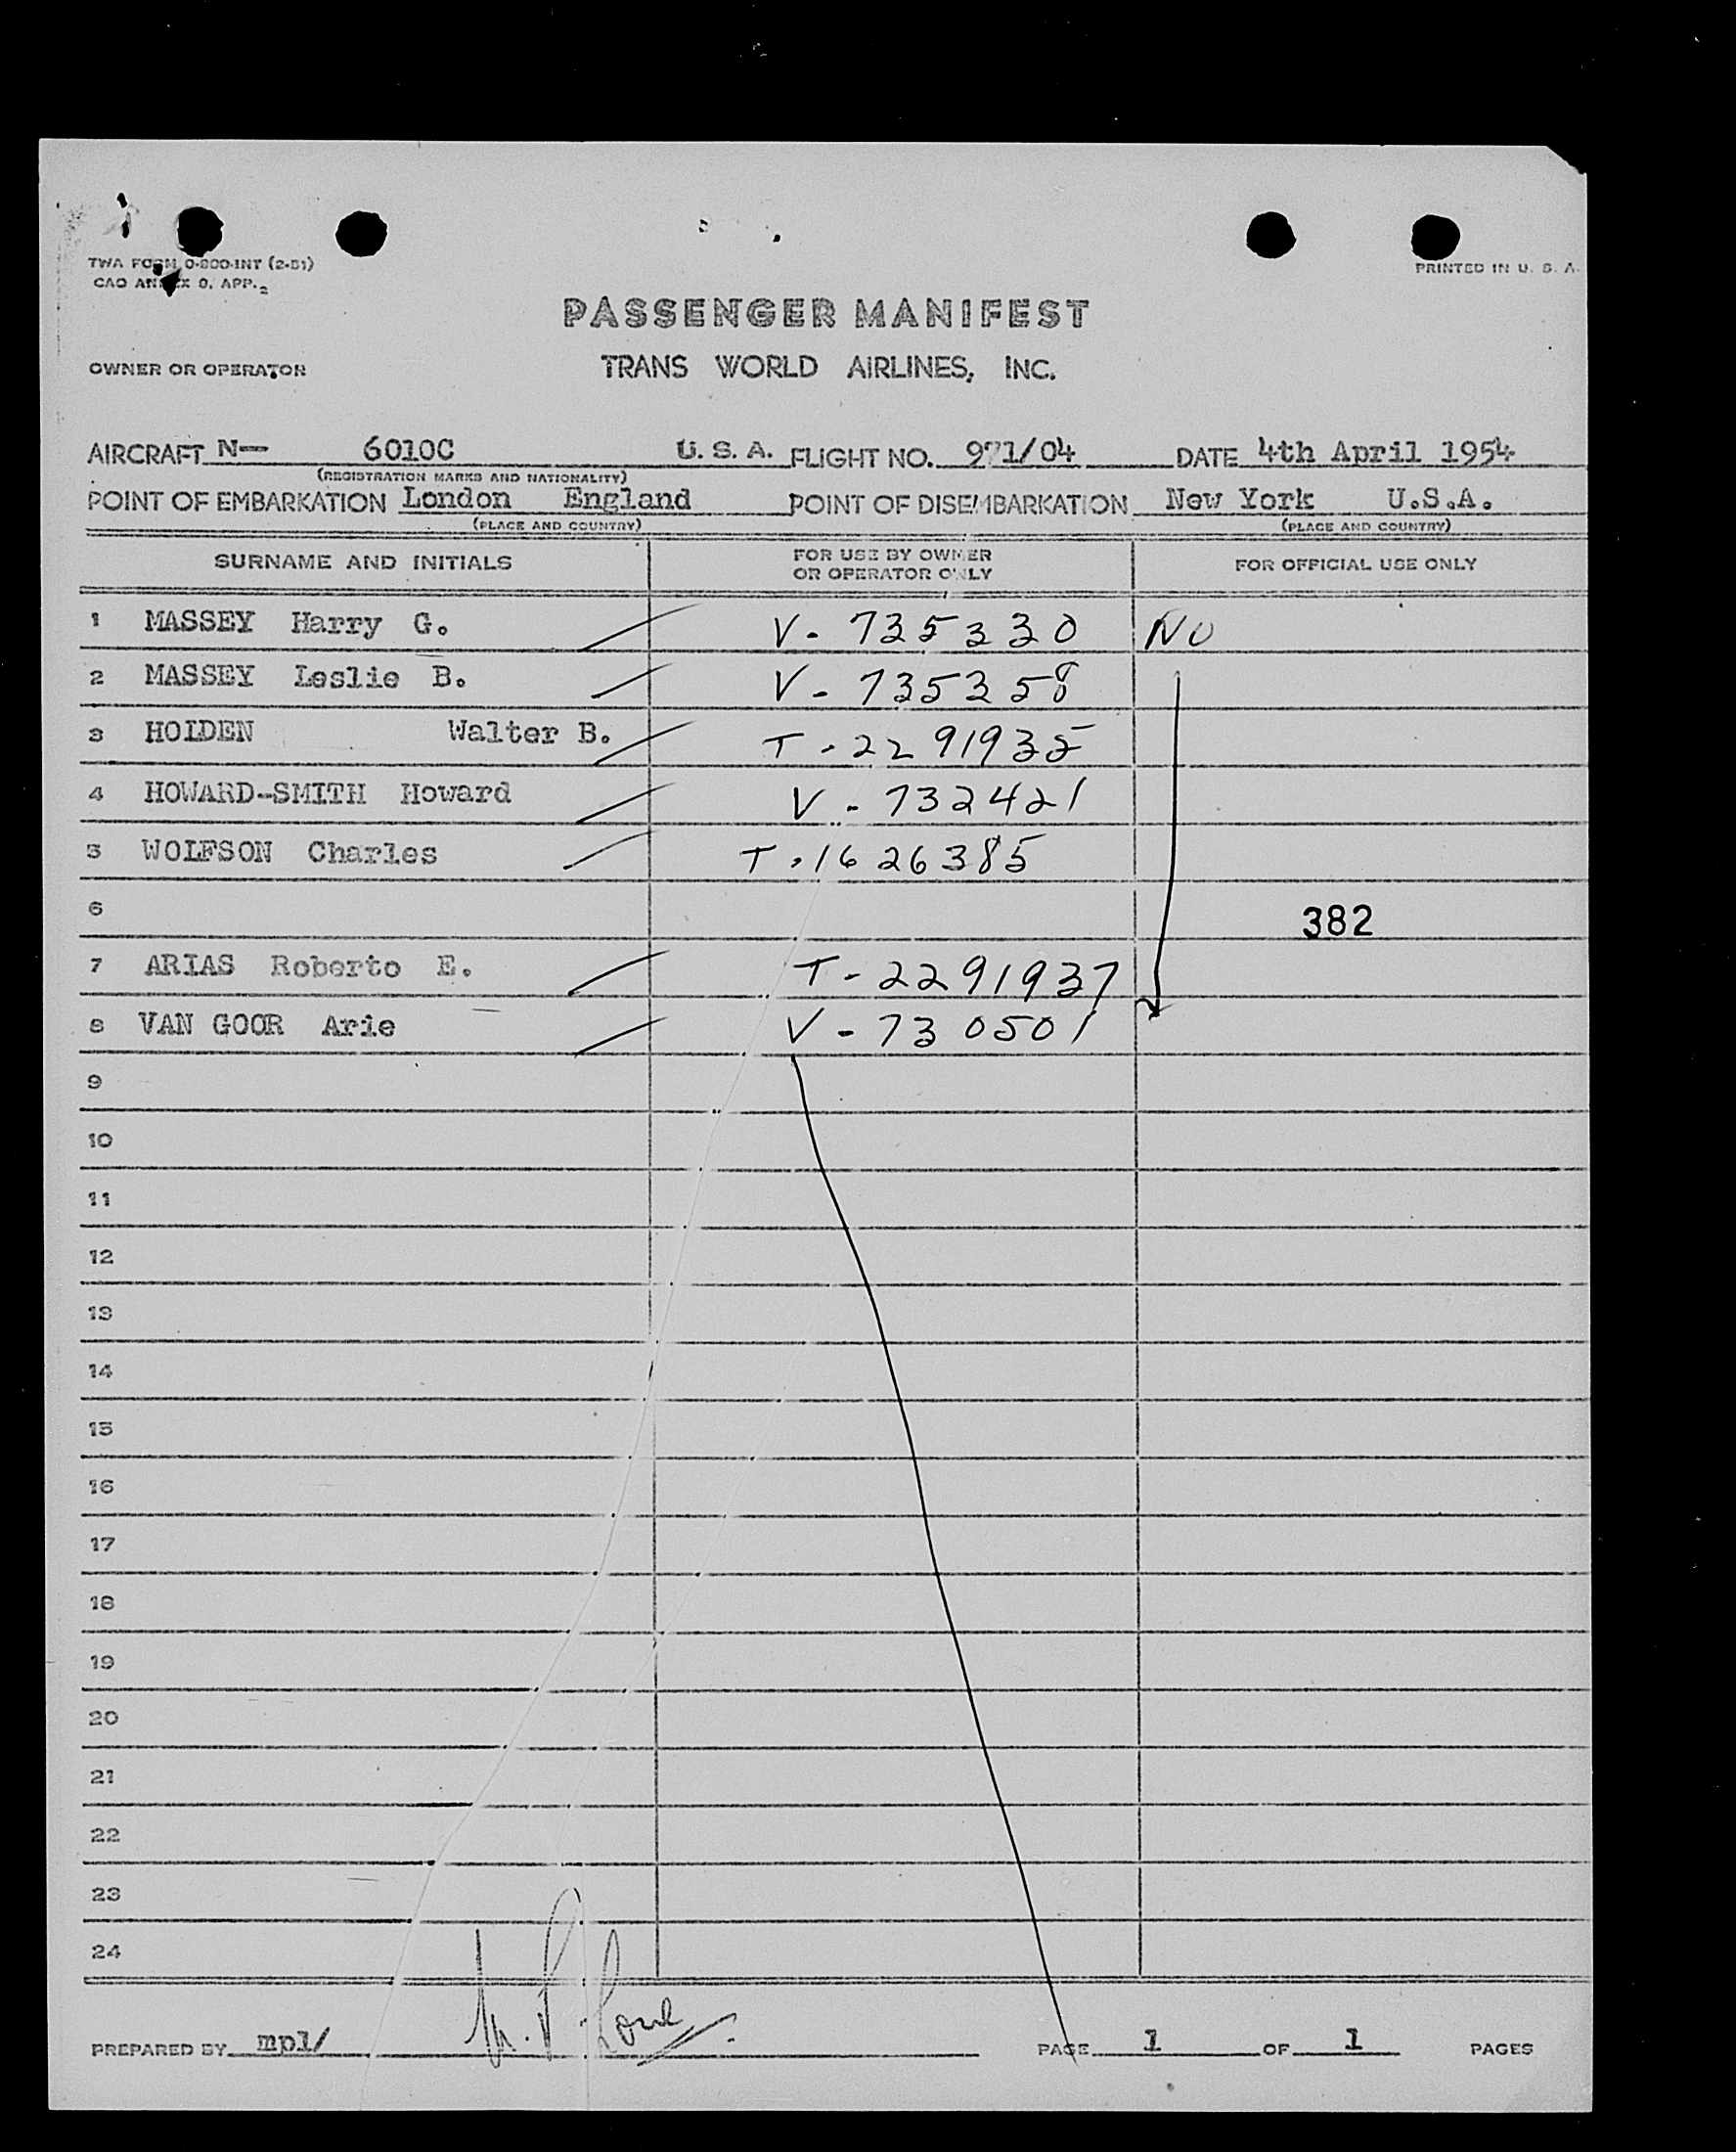 TWA FORM O-800-INT (2-51)
CAO ANNEX 9, APP. 2
PRINTED IN U. S. A.
PASSENGER MANIFEST
OWNER OR OPERATOR
TRANS WORLD AIRLINES, INC.
AIRCRAFT N— 6010C U. S. A. FLIGHT NO. 971/04 DATE 4th April 1954
(REGISTRATION MARKS AND NATIONALITY)
POINT OF EMBARKATION London England POINT OF DISEMBARKATION New York U.S.A.
(PLACE AND COUNTRY) (PLACE AND COUNTRY)
SURNAME AND INITIALS FOR USE BY OWNER OR OPERATOR ONLY FOR OFFICIAL USE ONLY
1 MASSEY Harry G. V- 735330 NO
2 MASSEY Leslie B. V- 735358
3 HOLDEN Walter B. T-2291935
4 HOWARD-SMITH Howard V-732421
5 WOLFSON Charles T-1626385
6 382
7 ARIAS Roberto E. T-2291937
8 VAN GOOR Arie V-730501
9
10
11
12
13
14
15
16
17
18
19
20
21
22
23
24
PREPARED BY mpl/ PAGE 1 OF 1 PAGES